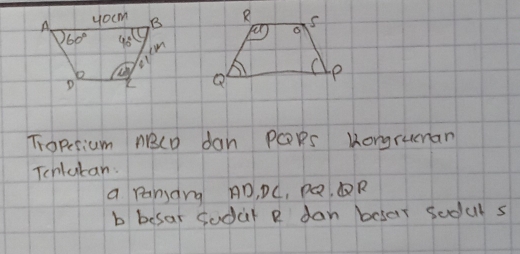 40cm
A B R S
60° 45°
D C Q P
Trapesium ABCD dan PQRS Kongruenan
Tentukan.
a Panjang AD, DC, PQ, QR
b besar sudut R dan besar sudut s